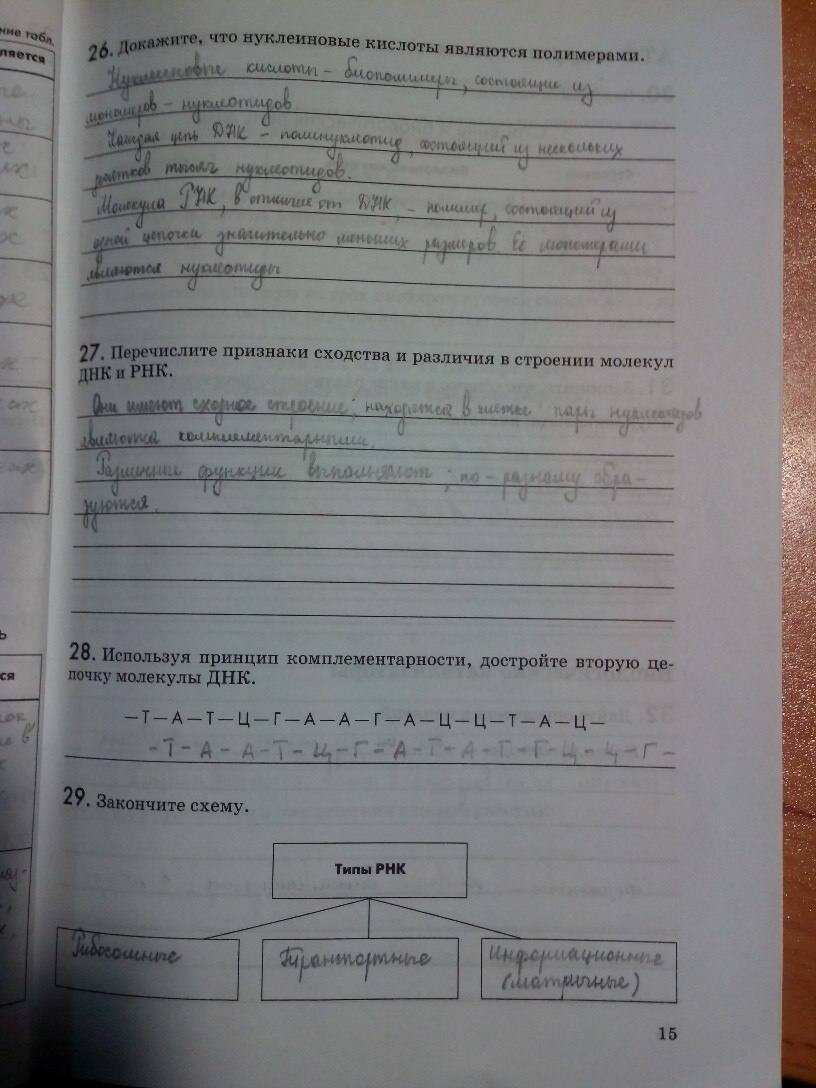 ние табл.
ляется
26. Докажите, что нуклеиновые кислоты являются полимерами.
Нуклеиновые кислоты – биополимеры, состоящие из
мономеров – нуклеотидов
Каждая цепь ДНК – полинуклеотид, состоящий из нескольких
десятков тысяч нуклеотидов.
Молекула РНК, в отличие от ДНК, – полимер, состоящий из
одной цепочки значительно меньших размеров. Её мономерами
являются нуклеотиды
27. Перечислите признаки сходства и различия в строении молекул
ДНК и РНК.
Они имеют сходное строение; находятся в клетке; пары нуклеотидов
являются комплементарными.
Различные функции выполняют; по-разному обра-
зуются.
28. Используя принцип комплементарности, достройте вторую це-
почку молекулы ДНК.
–Т–А–Т–Ц–Г–А–А–Г–А–Ц–Ц–Т–А–Ц–
29. Закончите схему.
Типы РНК
Рибосомные
Транспортные
Информационные
(матричные)
15